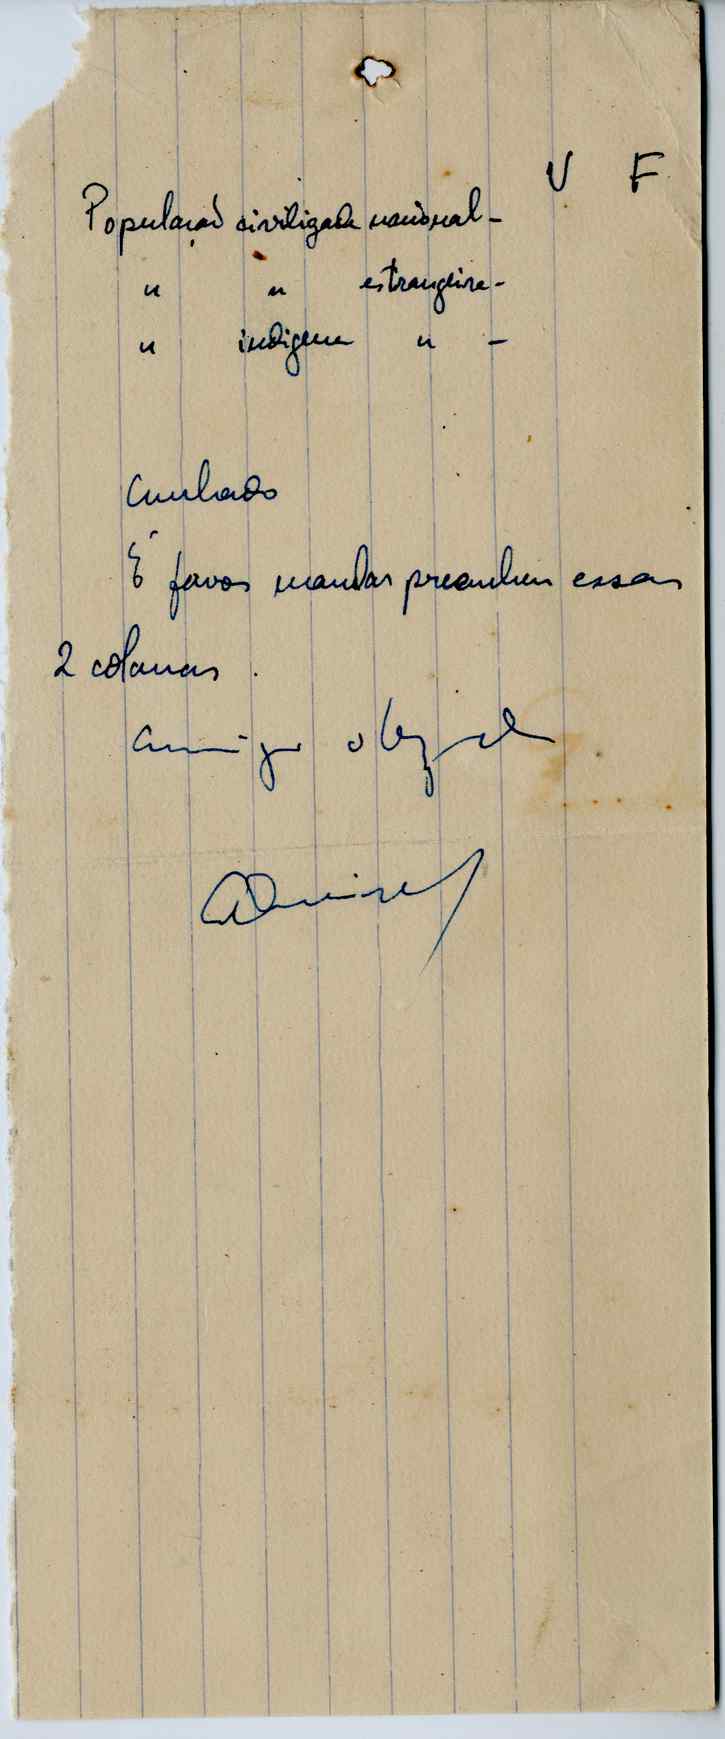 V F
População civilizada nacional -
" " estrangeira -
" indigena " -
Cunhado
É favor mandar preencher essas
2 colunas.
Amigo obgdo